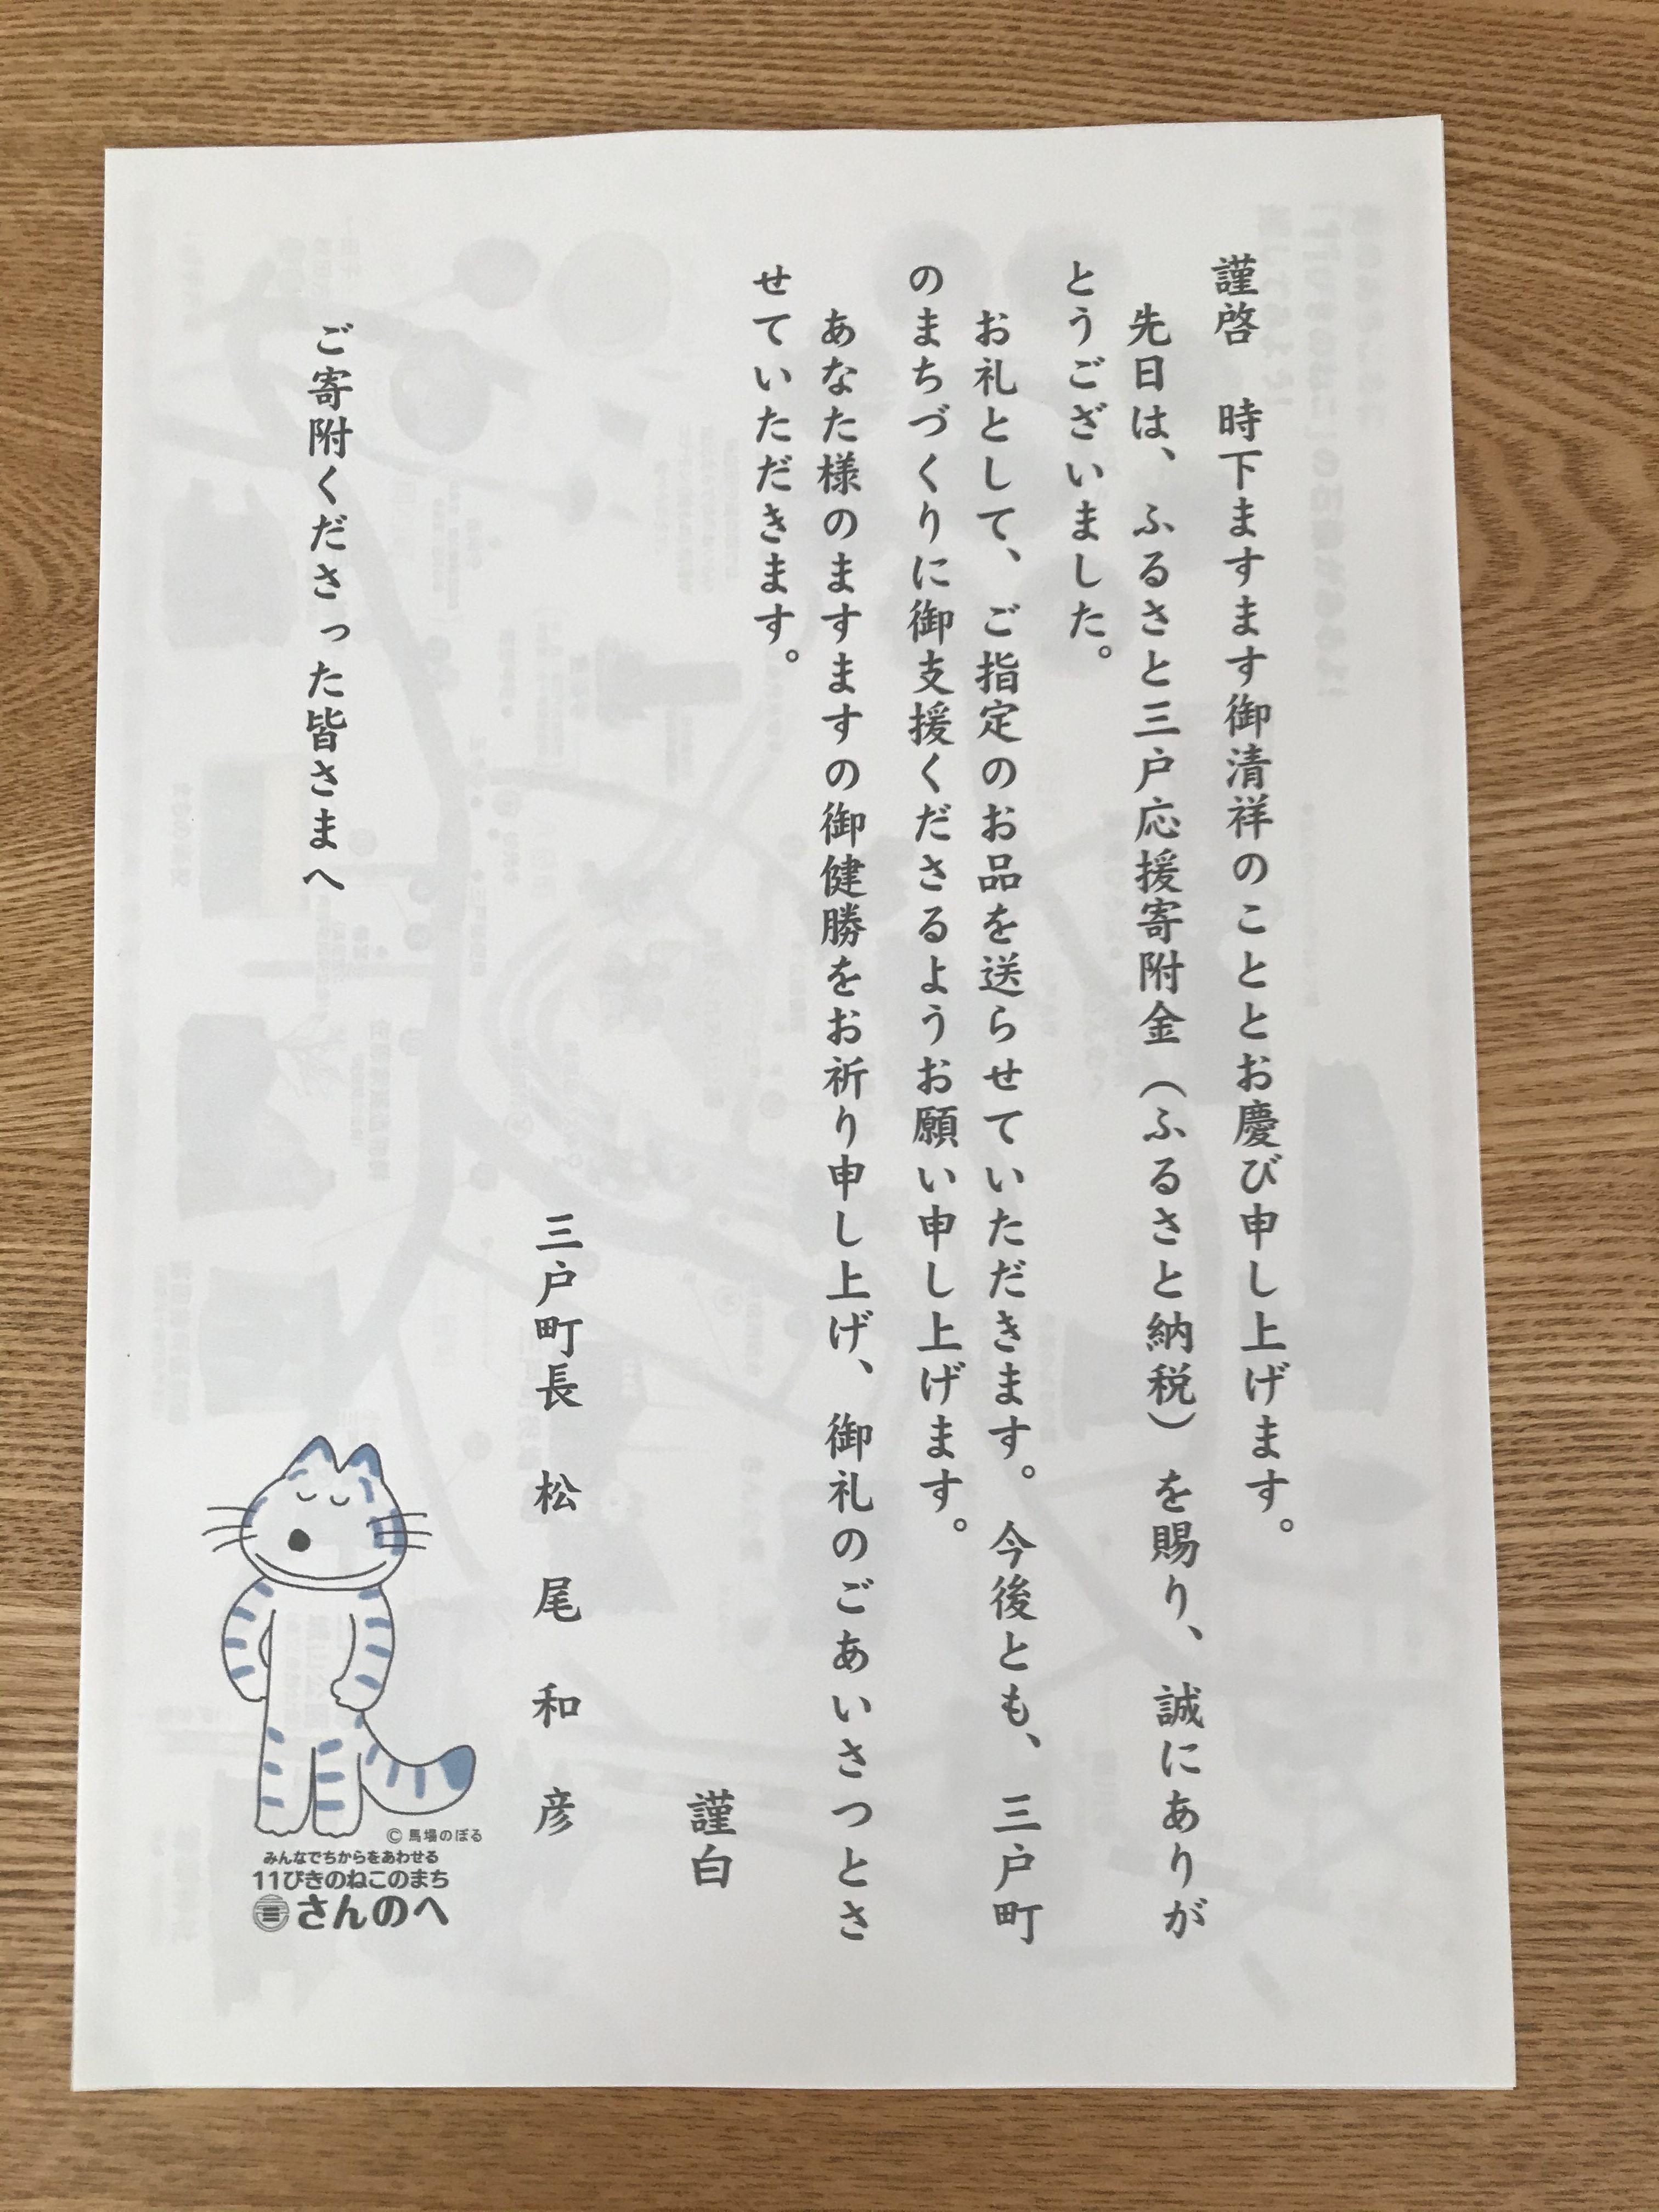 謹啓　時下ますます御清祥のこととお慶び申し上げます。
先日は、ふるさと三戸応援寄附金（ふるさと納税）を賜り、誠にありが
とうございました。
お礼として、ご指定のお品を送らせていただきます。今後とも、三戸町
のまちづくりに御支援くださるようお願い申し上げます。
あなた様のますますの御健勝をお祈り申し上げ、御礼のごあいさつとさ
せていただきます。
謹白
三戸町長　松　尾　和　彦
ご寄附くださった皆さまへ
© 馬場のぼる
みんなでちからをあわせる
11ぴきのねこのまち
さんのへ